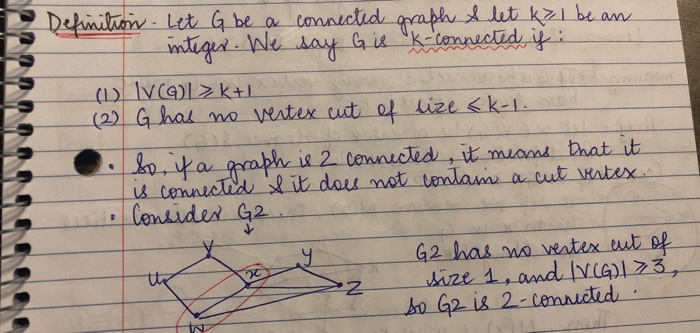 Definition. Let G be a connected graph & let k≥1 be an
integer. We say G is k-connected if :
(1) |V(G)| ≥ k+1
(2) G has no vertex cut of size ≤ k-1.
• So, if a graph is 2 connected, it means that it
is connected & it does not contain a cut vertex.
• Consider G2.
↓
v
y
x
u
z
w
G2 has no vertex cut of
size 1, and |V(G)| ≥ 3,
so G2 is 2-connected.